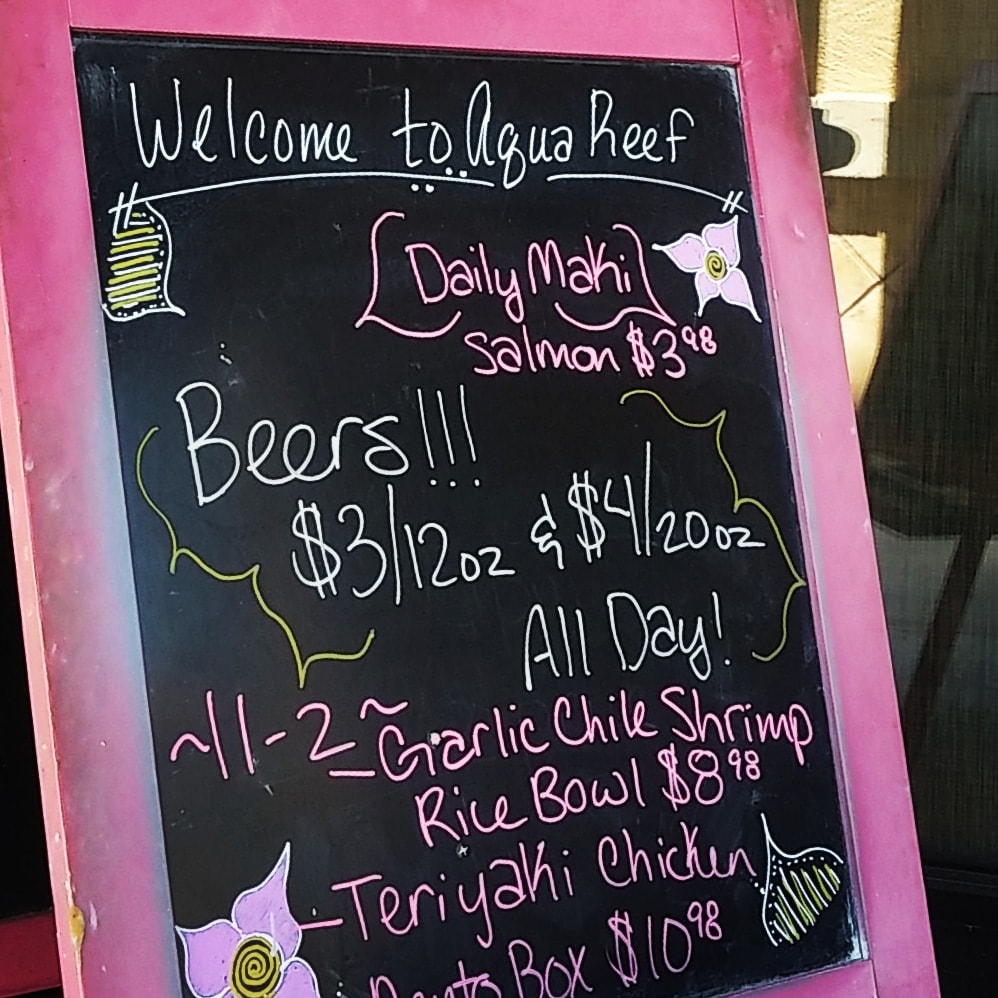 Welcome to Aqua Reef
Daily Maki
Salmon $3.98
Beers!!!
$3/12oz & $4/20oz
All Day!
~11-2~
-Garlic Chile Shrimp
Rice Bowl $8.98
-Teriyaki Chicken
Bento Box $10.98